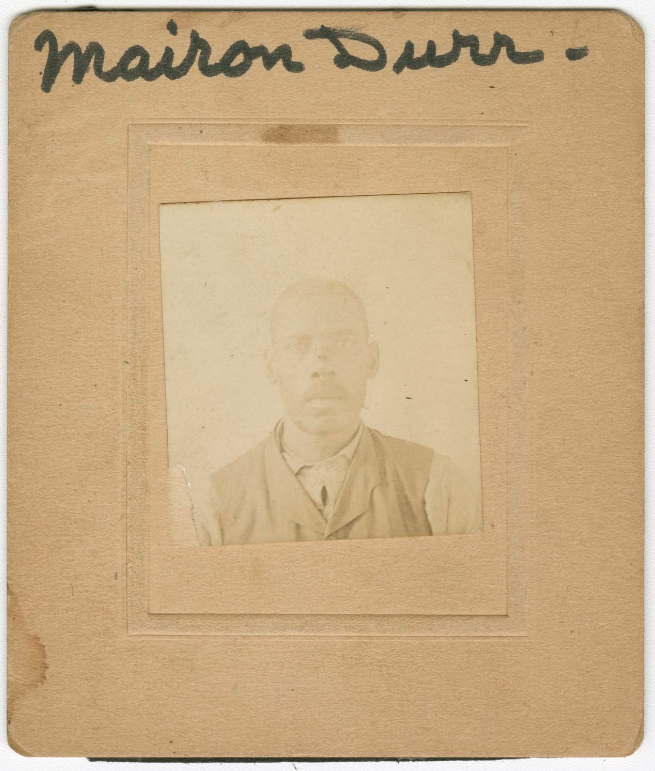 Mairon Durr -